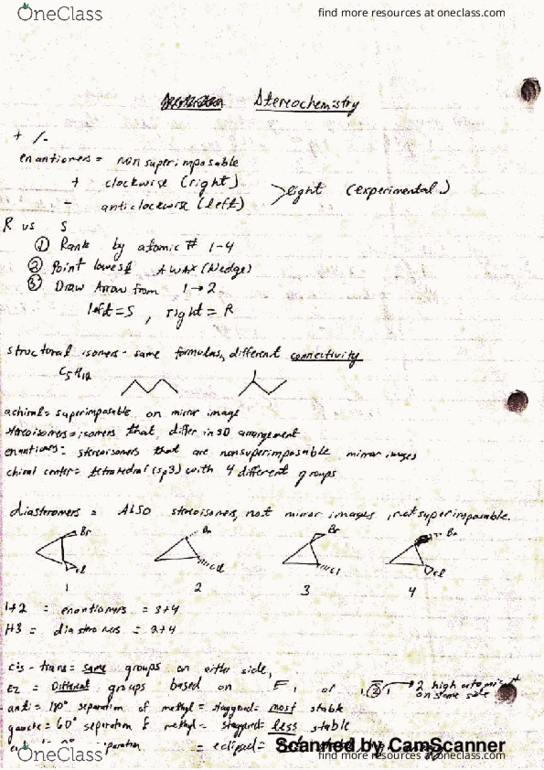 OneClass
find more resources at oneclass.com
Stereochemistry
+ /-
enantiomers = nonsuperimposable
+ clockwise (right)
- anticlockwise (left)
light (experimental)
R vs S
① Rank by atomic # 1-4
② Point lowest AWAY (Wedge)
③ Draw Arrow from 1→2
left=S, right=R
structural isomers - same formulas, different connectivity
C5H12
achiral = superimposable on mirror image
stereoisomers = isomers that differ in 3D arrangement
enantiomers = stereoisomers that are nonsuperimposable mirror images
chiral center = tetrahedral (sp3) with 4 different groups
diastromers = ALSO stereoisomers, not mirror images, not superimposable.
Br Br Br Br
Cl Cl Cl Cl
1 2 3 4
1+2 = enantiomers = 3+4
1+3 = diastromers = 2+4
cis-trans = same groups on either side,
EZ = Different groups based on E, or Z
2 high on same side
anti = 180° separation of methyl = staggered = most stable
gauche = 60° separation of methyl = staggered = less stable
separation = eclipsed =
Scanned by CamScanner
OneClass
find more resources at oneclass.com